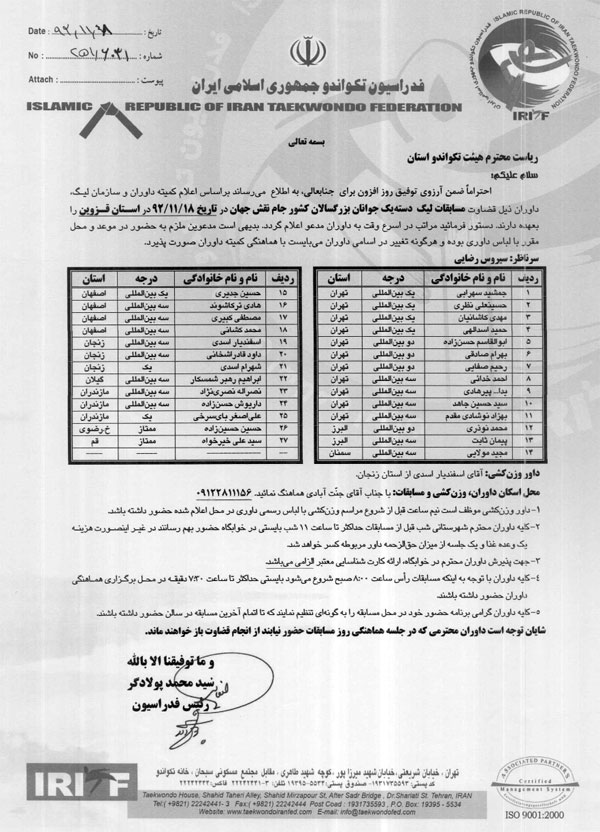 Date : ۹۲,۱۱,۸ : تاریخ
No : : شماره
Attach : : پیوست
ISLAMIC REPUBLIC OF IRAN TAEKWONDO FEDERATION
IRITF
فدراسیون تکواندو جمهوری اسلامی ایران
ISLAMIC REPUBLIC OF IRAN TAEKWONDO FEDERATION
بسمه تعالی
ریاست محترم هیئت تکواندو استان
سلام علیکم:
احتراماً ضمن آرزوی توفیق روز افزون برای جنابعالی، به اطلاع می‌رساند براساس اعلام کمیته داوران و سازمان لیگ،
داوران ذیل قضاوت مسابقات لیگ دسته‌یک جوانان بزرگسالان کشور جام نقش جهان در تاریخ ۹۲/۱۱/۱۸ در استان قزوین را
بعهده دارند. دستور فرمائید مراتب در اسرع وقت به داوران مدعو اعلام گردد. بدیهی است مدعوین ملزم به حضور در موعد و محل
مقرر با لباس داوری بوده و هرگونه تغییر در اسامی داوران می‌بایست با هماهنگی کمیته داوران صورت پذیرد.
سرناظر: سیروس رضایی
ردیف نام و نام خانوادگی درجه استان
۱ جمشید سهرابی یک بین‌المللی تهران
۲ حسینعلی نظری یک بین‌المللی تهران
۳ مهدی کاشانیان یک بین‌المللی تهران
۴ حمید اسدالهی یک بین‌المللی تهران
۵ ابوالقاسم حسن‌زاده دو بین‌المللی تهران
۶ بهرام صادقی دو بین‌المللی تهران
۷ رحیم صفایی دو بین‌المللی تهران
۸ احمد خدائی سه بین‌المللی تهران
۹ یدا... پیرهادی سه بین‌المللی تهران
۱۰ سید حسین جاهد سه بین‌المللی تهران
۱۱ بهزاد نوشادی مقدم سه بین‌المللی تهران
۱۲ محمد نوذری دو بین‌المللی البرز
۱۳ پیمان ثابت سه بین‌المللی البرز
۱۴ مجید مولایی سه بین‌المللی سمنان
ردیف نام و نام خانوادگی درجه استان
۱۵ حسین جدیری یک بین‌المللی اصفهان
۱۶ هادی ترکاشوند سه بین‌المللی اصفهان
۱۷ مصطفی کبیری سه بین‌المللی اصفهان
۱۸ محمد کاشانی سه بین‌المللی اصفهان
۱۹ اسفندیار اسدی سه بین‌المللی زنجان
۲۰ داود قادراشخانی سه بین‌المللی زنجان
۲۱ شهرام اسدی یک زنجان
۲۲ ابراهیم رهبر شمسکار سه بین‌المللی گیلان
۲۳ نصراله نصری‌نژاد سه بین‌المللی مازندران
۲۴ داریوش حسن‌زاده سه بین‌المللی مازندران
۲۵ علی‌اصغر بای‌سرخی یک مازندران
۲۶ حسین حسین‌زاده ممتاز خ.رضوی
۲۷ سید علی خیرخواه ممتاز قم
داور وزن‌کشی: آقای اسفندیار اسدی از استان زنجان.
محل اسکان داوران، وزن‌کشی و مسابقات: با جناب آقای جنّت آبادی هماهنگ نمائید. ۰۹۱۲۲۸۱۱۱۵۶
۱–داور وزن‌کشی موظف است نیم ساعت قبل از شروع مراسم وزن‌کشی با لباس رسمی داوری در محل اعلام شده حضور داشته باشد.
۲–کلیه داوران محترم شهرستانی شب قبل از مسابقات حداکثر تا ساعت ۱۱ شب بایستی در خوابگاه حضور بهم رسانند در غیر اینصورت هزینه
یک وعده غذا و یک جلسه از میزان حق‌الزحمه داور مربوطه کسر خواهد شد.
۳–جهت پذیرش داوران محترم در خوابگاه، ارائه کارت شناسایی معتبر الزامی می‌باشد.
۴–کلیه داوران با توجه به اینکه مسابقات رأس ساعت ۸:۰۰ صبح شروع می‌شود بایستی حداکثر تا ساعت ۷:۳۰ دقیقه در محل برگزاری هماهنگی
داوران حضور داشته باشند.
۵–کلیه داوران گرامی برنامه حضور خود در محل مسابقه را به گونه‌ای تنظیم نمایند که تا اتمام آخرین مسابقه در سالن حضور داشته باشند.
شایان توجه است داوران محترمی که در جلسه هماهنگی روز مسابقات حضور نیابند از انجام قضاوت باز خواهند ماند.
و ما توفیقنا الا بالله
سید محمد پولادگر
رئیس فدراسیون
IRITF
تهران، خیابان شریعتی، خیابان شهید میرزا پور، کوچه شهید طاهری، مقابل مجتمع مسکونی سبحان، خانه تکواندو
کدپستی: ۱۹۳۱۷۳۵۵۹۳ – صندوق پستی: ۵۵۳۴–۱۹۳۹۵ تلفن: ۳–۲۲۲۴۲۴۴۱ فاکس: ۲۲۲۴۲۴۴۴
Taekwondo House, Shahid Taheri Alley, Shahid Mirzapour St, After Sadr Bridge , Dr.Shariati St. Tehran, IRAN
Tel:(+9821) 22242441- 3 Fax:(+9821) 22242444 Post Coad : 1931735593 , P.O. Box: 19395 - 5534
Website: www.taekwondoiranfed.com E-mail: info@taekwondofed.com
ASSOCIATED PARTNERS
Certified
Management System
ISO 9001:2000